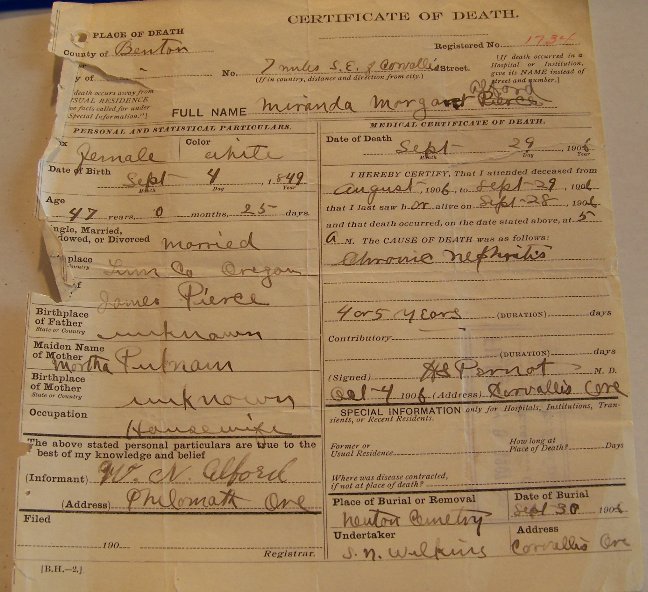 CERTIFICATE OF DEATH.
PLACE OF DEATH
County of Benton
Registered No. 1734
y of " No. 7 miles S.E. of Corvallis Street.
(If in country, distance and direction from city.)
(If death occurred in a Hospital or Institution, give its NAME instead of street and number.)
death occurs away from
USUAL RESIDENCE
ve facts called for under
Special Information.")
Alford
FULL NAME Miranda Margaret Pierce
PERSONAL AND STATISTICAL PARTICULARS.
ex Female Color White
Date of Birth Sept 4, 1849
Month Day Year
Age
47 years, 0 months, 25 days.
ngle, Married,
dowed, or Divorced married
hplace
Country Linn Co Oregon
of James Pierce
Birthplace
of Father
State or Country unknown
Maiden Name
of Mother Martha Putnam
Birthplace
of Mother
State or Country unknown
Occupation Housewife
The above stated personal particulars are true to the
best of my knowledge and belief
(Informant) W. N. Alford
(Address) Philomath Ore
Filed
190 Registrar.
[B.H.—2.]
MEDICAL CERTIFICATE OF DEATH.
Date of Death Sept 29, 1906
Month Day Year
I HEREBY CERTIFY, That I attended deceased from
August, 1906, to Sept-29 1906
that I last saw her alive on Sept-28 1906
and that death occurred, on the date stated above, at 5
A. M. The CAUSE OF DEATH was as follows:
Chronic nephritis
4 or 5 years (DURATION) days
Contributory
(DURATION) days
(Signed) HS Pernot M. D.
Oct-4 1906 (Address) Corvallis Ore
SPECIAL INFORMATION only for Hospitals, Institutions, Tran-
sients, or Recent Residents.
Former or
Usual Residence
How long at
Place of Death? Days
Where was disease contracted,
if not at place of death?
Place of Burial or Removal Newton Cemetry
Date of Burial Sept 30 1906
Undertaker S. N. Wilkins
Address Corvallis Ore